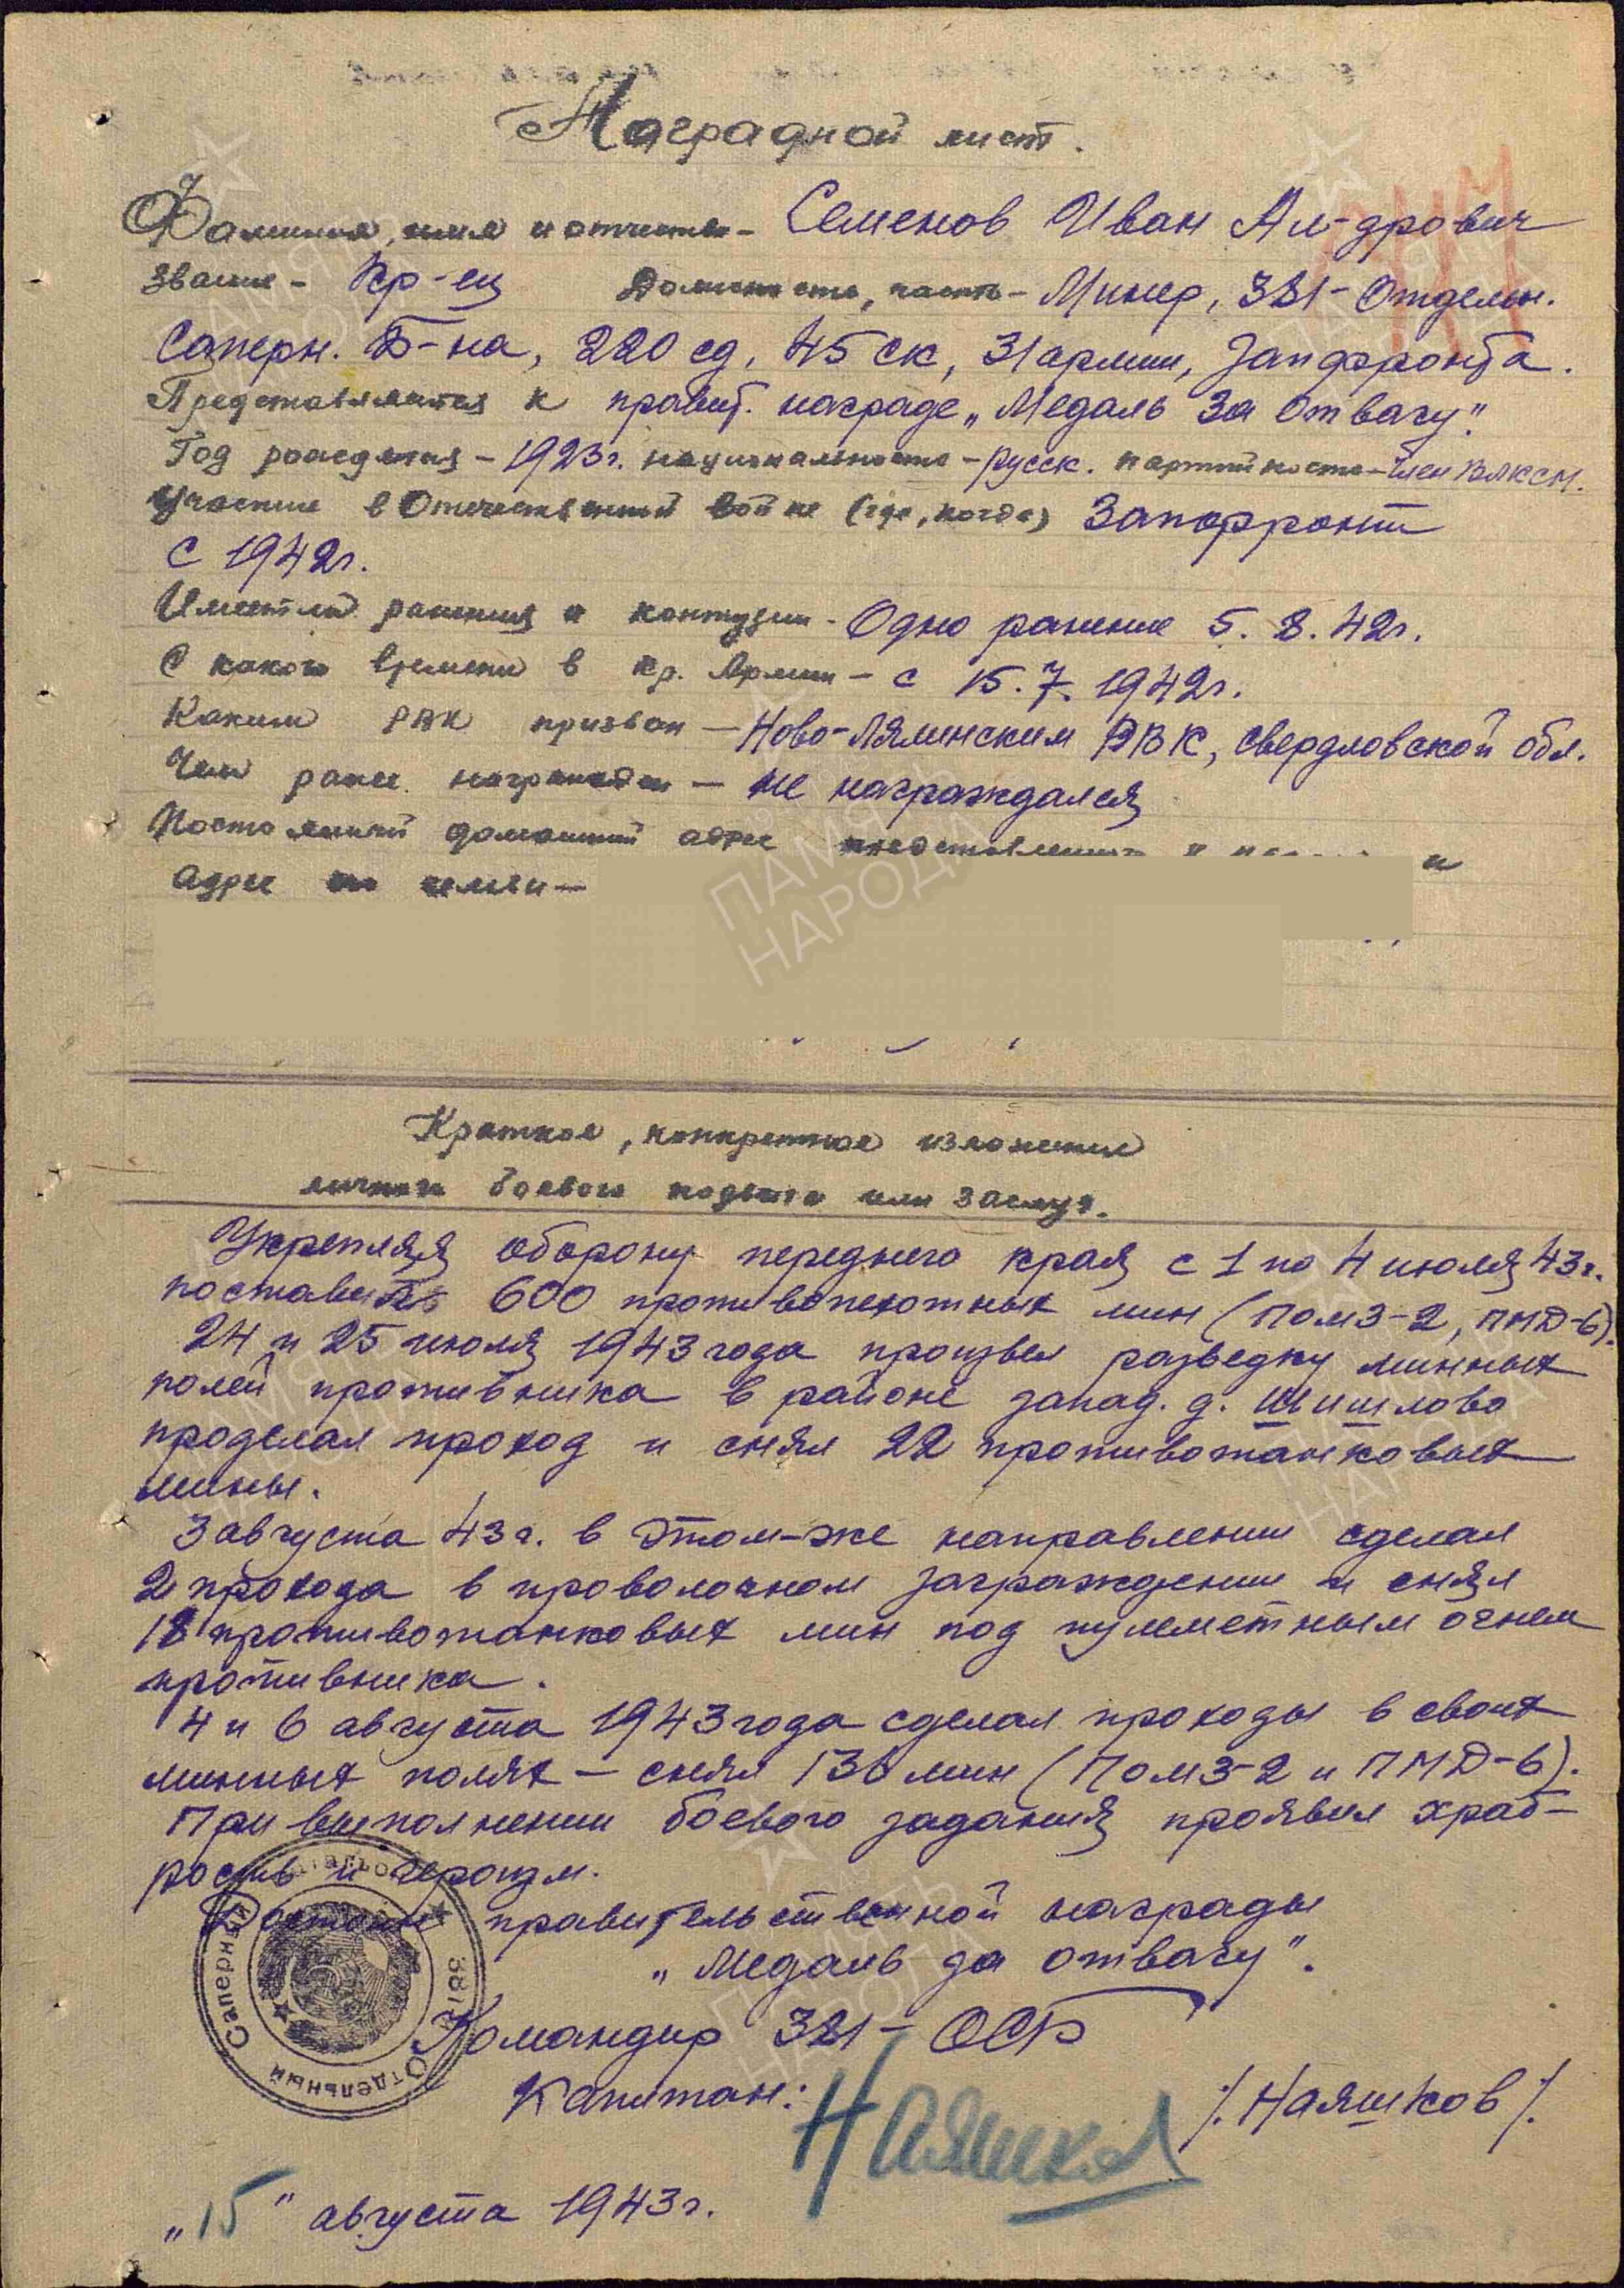 Наградной лист.
Фамилия, имя и отчество - Семенов Иван Ал-дрович
Звание - Кр-ец Должность, часть - Минер, 381-Отдельн.
Саперн. Б-на, 220 сд, 45 ск, 31 армии, Запфронта.
Представляется к правит. награде „Медаль За Отвагу".
Год рождения - 1923 г. национальность - русск. партийность - член ВЛКСМ.
Участие в Отечественной войне (где, когда) Запфронт
с 1942 г.
Имеет ли ранения и контузии - Одно ранение 5. 8. 42 г.
С какого времени в Кр. Армии - с 15. 7. 1942 г.
Каким РВК призван - Ново-Лялинским РВК, Свердловской обл.
Чем ранее награжден - не награждался
Постоянный домашний адрес и
адрес семьи -
Краткое, конкретное изложение
личного боевого подвига или заслуг.
Укрепляя оборону переднего края с 1 по 4 июля 43 г.
поставил 600 противопехотных мин (Помз-2, ПМД-6).
24 и 25 июля 1943 года произвел разведку минных
полей противника в районе запад. д. Шишлово
проделал проход и снял 22 противотанковых
мины.
3 августа 43 г. в этом-же направлении сделал
2 прохода в проволочном заграждении и снял
18 противотанковых мин под пулеметным огнем
противника.
4 и 6 августа 1943 года сделал проходы в своих
минных полях - снял 136 мин (Помз-2 и ПМД-6).
При выполнении боевого задания проявил храб-
рость и героизм.
Достоин правительственной награды
„Медаль за отвагу".
Командир 381- ОСБ
Капитан: Наяшков /.Наяшков/.
„15" августа 1943 г.
Отдельный Саперный
381
ПАМЯТЬ
НАРОДА